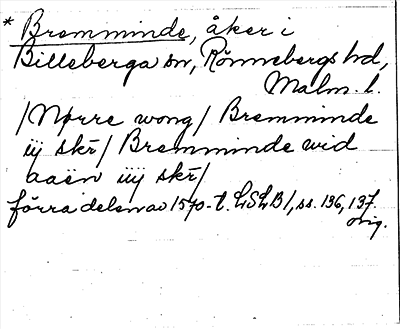 * Bremminde, åker i
Billeberga sn, Rönnebergs hd,
Malm. l.
/Nørre wong/ Bremminde
iij skr̄/ Bremminde wid
aaën iiij skr̄/
förra delen av 1570-t. LSLB1, ss. 136, 137.
orig.